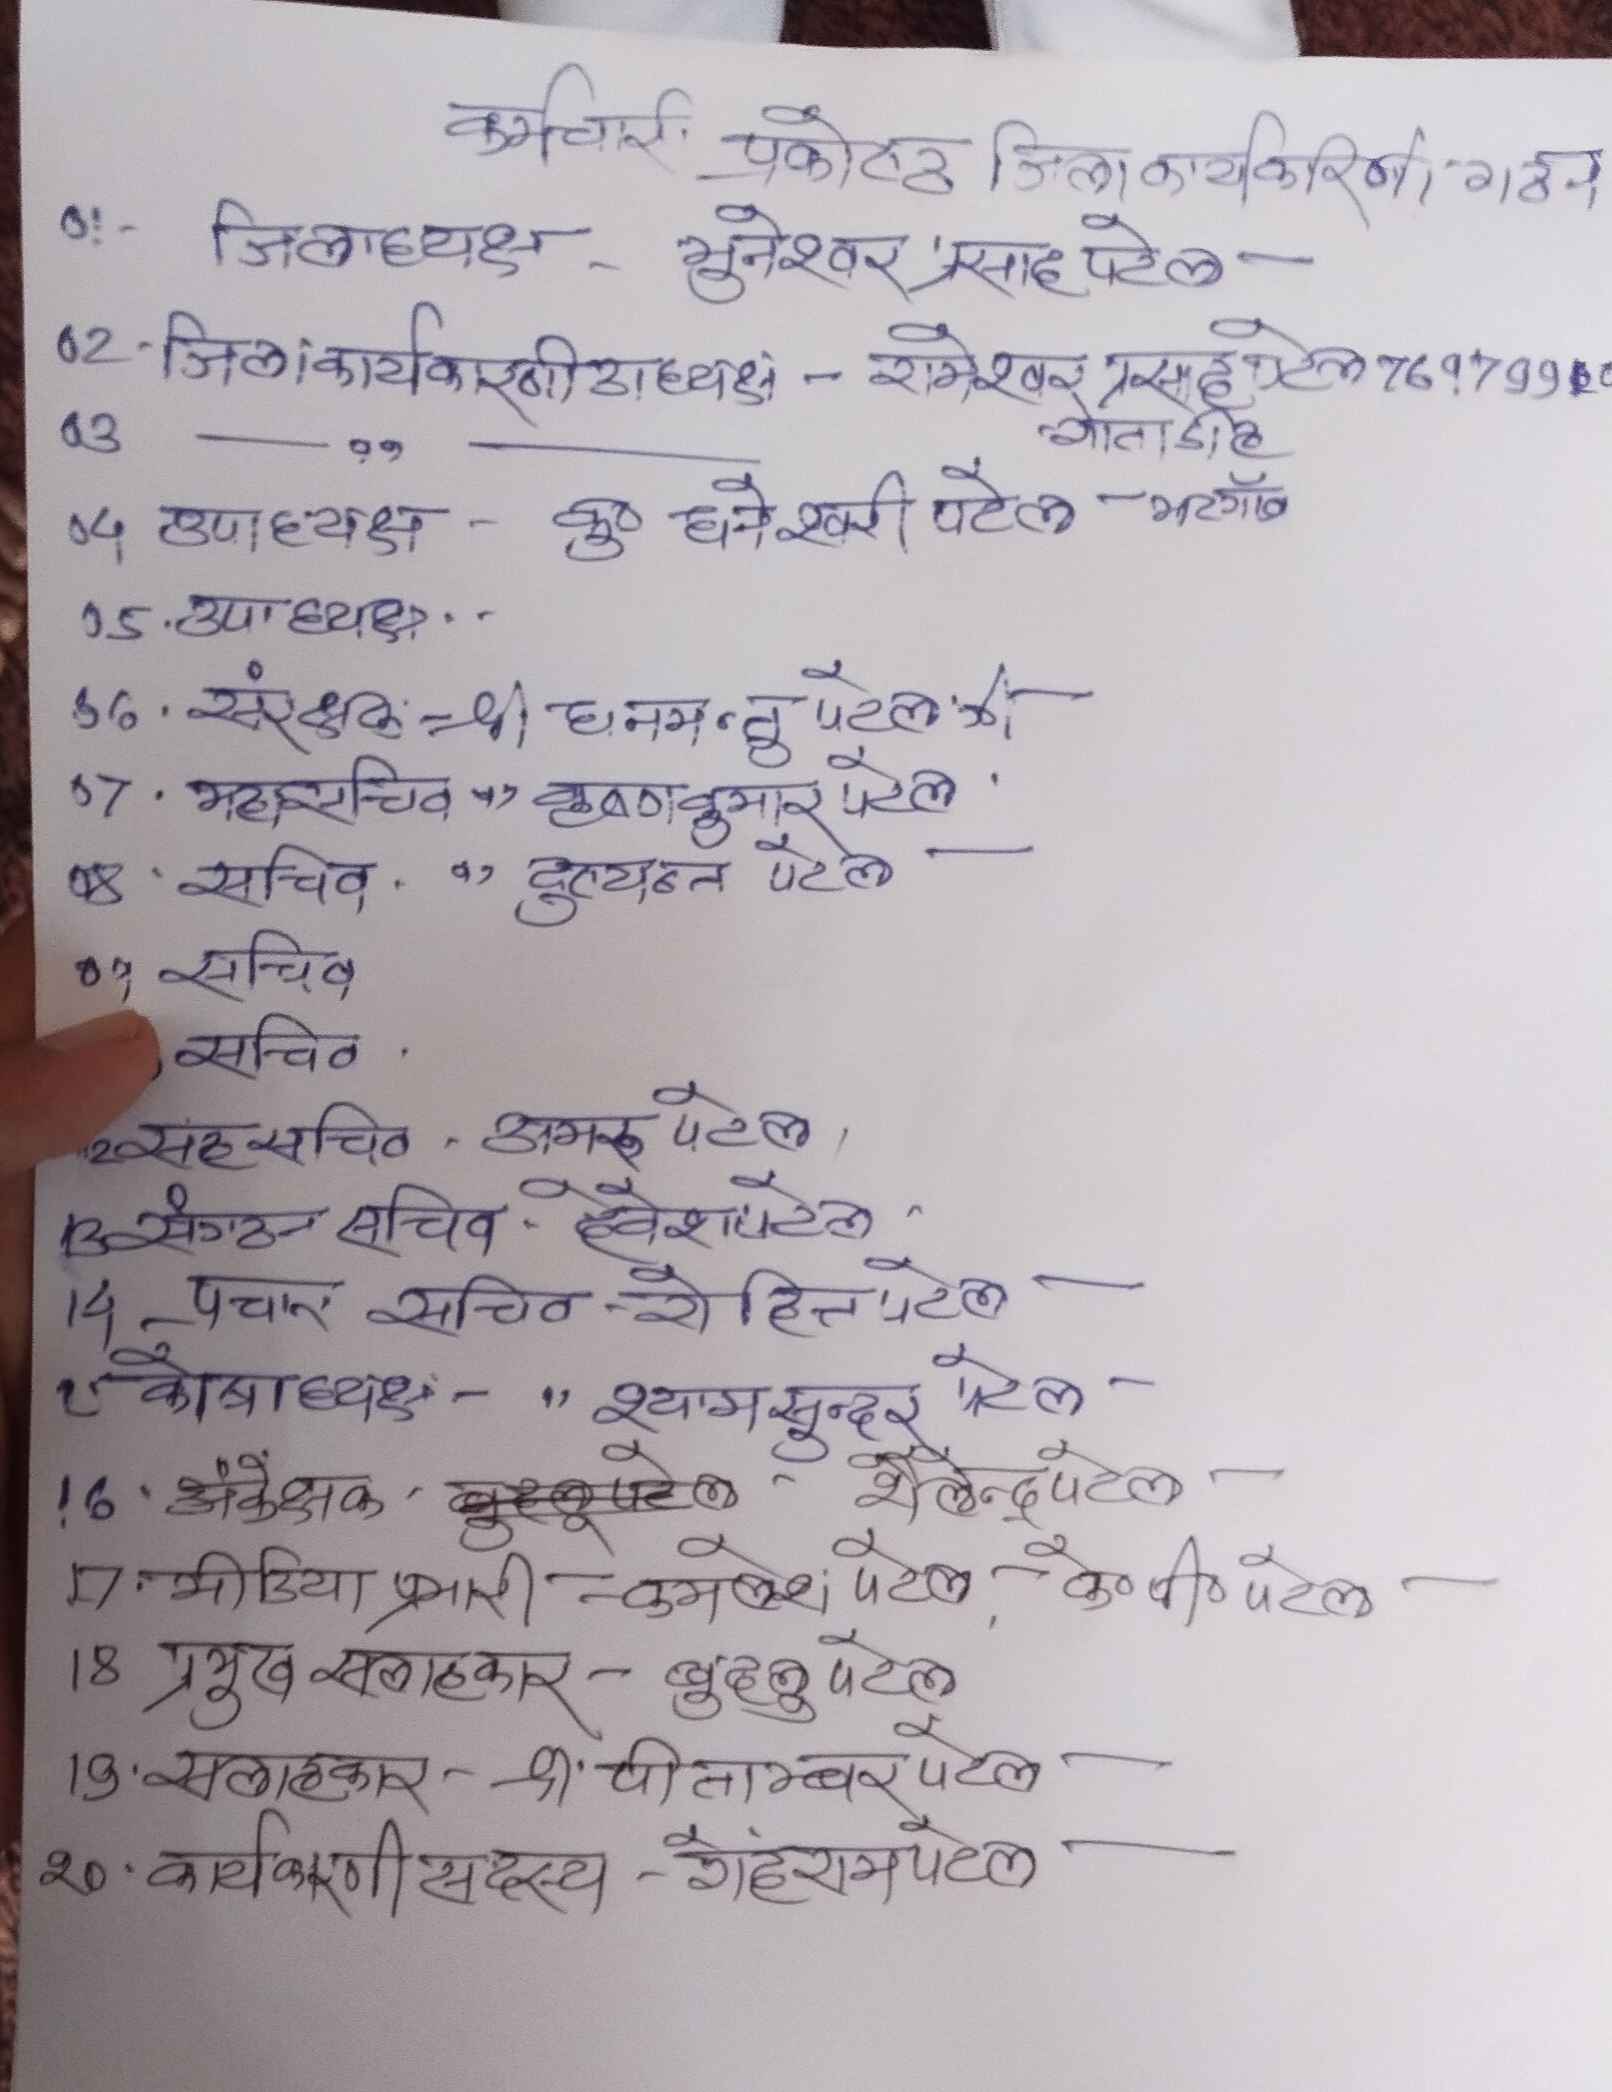 कर्मचारी प्रकोष्ठ जिला कार्यकारिणी गठन
01- जिलाध्यक्ष - भुनेश्वर प्रसाद पटेल -
02- जिला कार्यकारणी अध्यक्ष - रामेश्वर प्रसाद पटेल
03 — ,, —
04 उपाध्यक्ष - कु० धनेश्वरी पटेल - भटगाँव
05. उपाध्यक्ष
06. संरक्षक - श्री पटेल जी -
07. महासचिव ,, कृष्ण कुमार पटेल
08. सचिव. ,, दुष्यन्त पटेल -
09, सचिव
, सचिव
12 सह सचिव - अमरु पटेल
13 संगठन सचिव - देवेश पटेल
14 प्रचार सचिव - रोहित पटेल -
कोषाध्यक्ष - ,, श्याम सुन्दर पटेल -
16. अंकेक्षक - शैलेन्द्र पटेल -
17. मीडिया प्रभारी - कमलेश पटेल, - के० पी० पटेल -
18 प्रमुख सलाहकार - बुदलु पटेल
19. सलाहकार - श्री पीताम्बर पटेल -
20. कार्यकारणी सदस्य - पटेल -